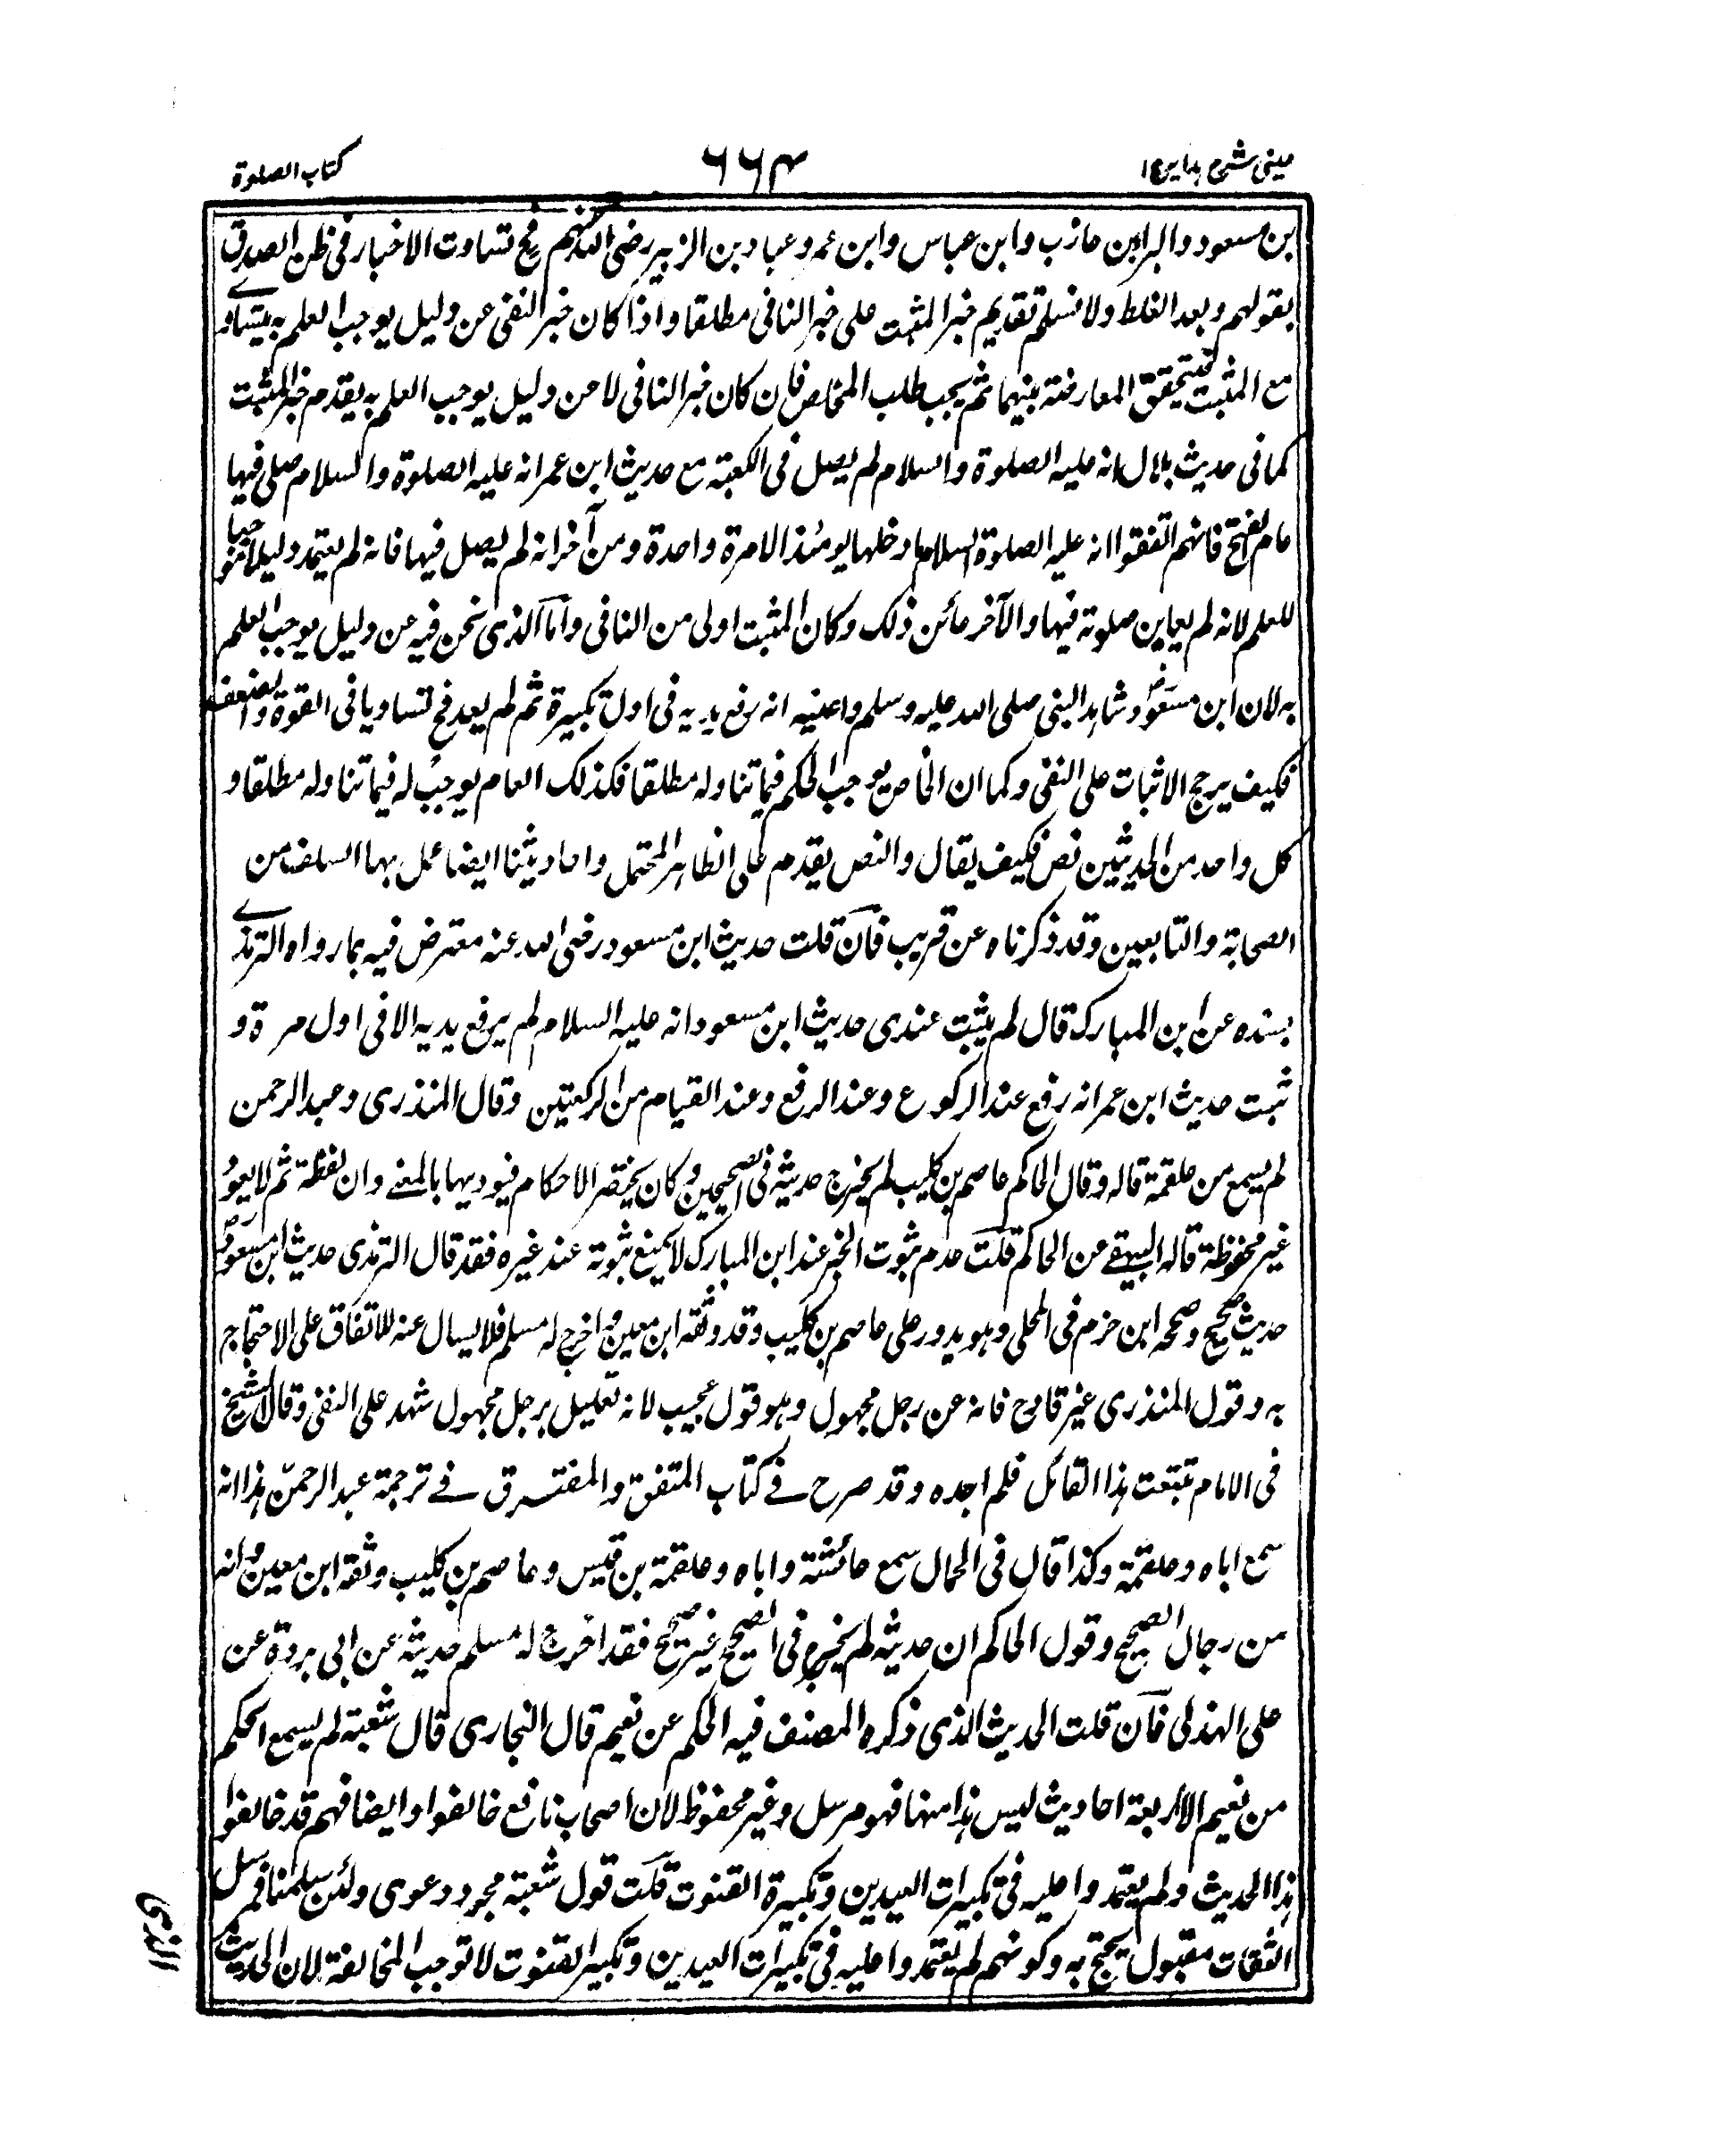 عینی شرح ہدایہ ج ١
٦٦٤
كتاب الصلوة
بن مسعود والبراء بن عازب وابن عباس وابن عمر وعباد بن الزبير رضى الله عنهم فح تساوت الاخبار فى ظن الصدق
بقولهم وبعد الغلط ولا نسلم تقديم خبر المثبت على خبر النافى مطلقا واذا كان خبر النفى عن دليل يوجب العلم به يتساوے
مع المثبت فيتحقق المعارضة بينهما ثم يجب طلب المخلص فان كان خبر النافى لا عن دليل يوجب العلم به يقدم خبر المثبت
كما فى حديث بلال انه عليه الصلوة والسلام لم يصل فى الكعبة مع حديث ابن عمر انه عليه الصلوة والسلام صلى فيها
عام الفتح فانهم اتفقوا انه عليه الصلوة والسلام ما دخلها يومئذ الا مرة واحدة ومن آخر انه لم يصل فيها فانه لم يعتمد دليلا موجبا
للعلم لانه لم يعاين صلوته فيها والآخر عائن ذلك وكان المثبت اولى من النافى واما الذى نحن فيه عن دليل يوجب العلم
به لان ابن مسعود رض شاهد النبى صلى الله عليه وسلم واعنيه انه رفع يديه فى اول تكبيرة ثم لم يعد فح تساويا فى القوة والضعف
فكيف يرجح الاثبات على النفى وكما ان الخاص يوجب الحكم فيما تناوله مطلقا فكذلك العام يوجب له فيما تناوله مطلقا و
كل واحد من الحديثين نص فكيف يقال والنص يقدم على الظاهر المحتمل واحاديثنا ايضا عمل بها السلف من
الصحابة والتابعين وقد ذكرناه عن قريب فان قلت حديث ابن مسعود رضى الله عنه معترض فيه بما رواه الترمذے
بسنده عن ابن المبارك قال لم يثبت عندى حديث ابن مسعود انه عليه السلام لم يرفع يديه الا فى اول مرة و
ثبت حديث ابن عمر انه رفع عند الركوع وعند الرفع وعند القيام من الركعتين وقال المنذرى وعبد الرحمن
لم يسمع من علقمة قاله وقال الحاكم عاصم بن كليب لم يخرج حديثه فى الصحيحين وكان يختصر الاحكام فيوديها بالمعنے وان لفظة ثم لا يعود
غير محفوظة قاله البيهقے عن الحاكم قلت عدم ثبوت الخبر عند ابن المبارك لا يمنع ثبوته عند غيره فقد قال الترمذى حديث ابن مسعود رض
حديث صحيح وصححه ابن حزم فى المحلى وهو يدور على عاصم بن كليب وقد وثقه ابن معين واخرج له مسلم فلا يسال عنه للاتفاق على الاحتجاج
به وقول المنذرى غير قادح فانه عن رجل مجهول وهو قول عجيب لانه تعليل برجل مجهول شهد على النفى وقال الشيخ
فى الامام تتبعت هذا القائل فلم اجده وقد صرح فے كتاب المتفق والمفترق فے ترجمة عبد الرحمن هذا انه
سمع اباه وعلقمة وكذا قال فى الكمال سمع عائشة واباه وعلقمة بن قيس وعاصم بن كليب وثقه ابن معين وانه
من رجال الصحيح وقول الحاكم ان حديثه لم يخرج فى الصحيح غير صحيح فقد اخرج له مسلم حديثه عن ابى بردة عن
على الهذلى فان قلت الحديث الذى ذكره المصنف فيه الحكم عن نعيم قال البخارى قال شعبة لم يسمع الحكم
من نعيم الا أربعة احاديث ليس هذا منها فهو مرسل وغير محفوظ لان اصحاب نافع خالفوا وايضا فهم قد خالفوا
هذا الحديث ولم يعتمدوا عليه فى تكبيرات العيدين وتكبيرة القنوت قلت قول شعبة مجرد دعوى ولئن سلمنا فمرسل
الثقات مقبول يحتج به وكونهم لم يعتمدوا عليه فى تكبيرات العيدين وتكبير القنوت لا توجب المخالفة لان الحديث
الذى